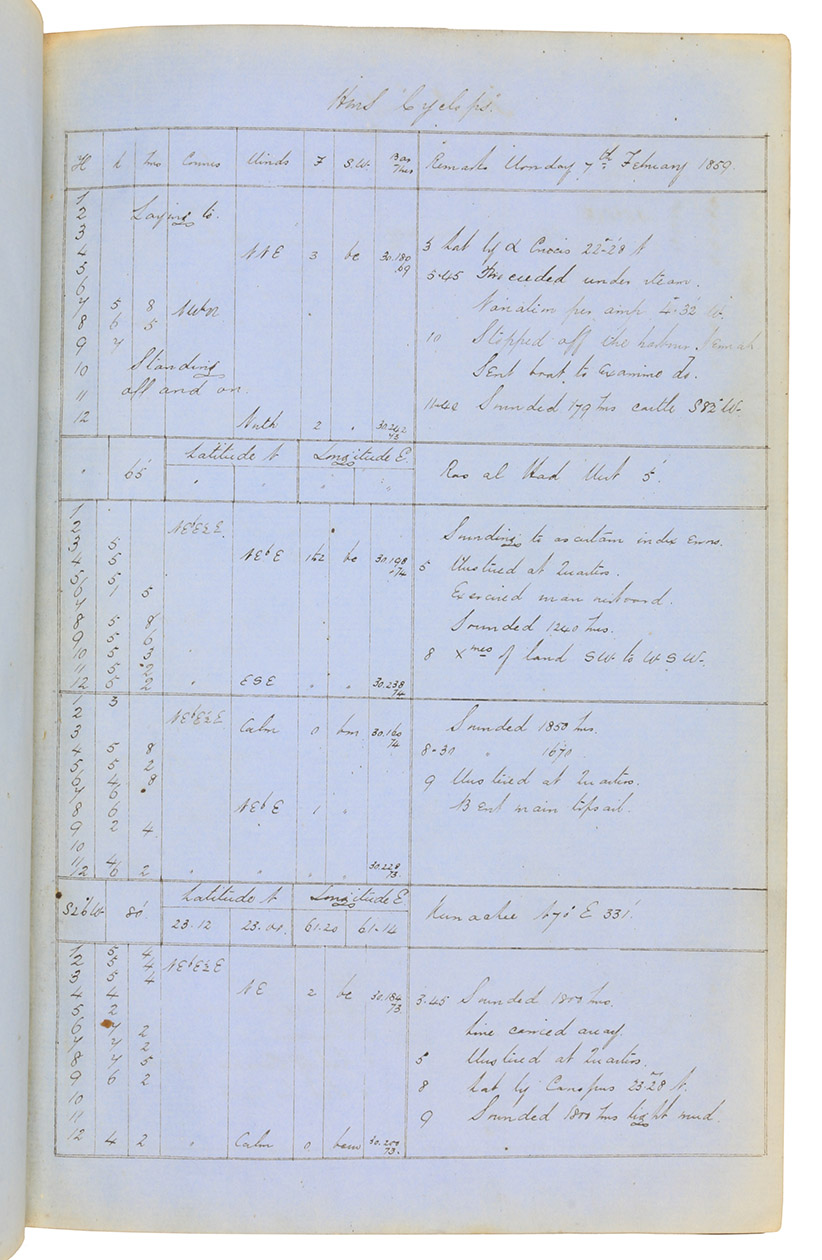 HMS Cyclops.
H K Fms Courses Winds F S.W. Bar Ther Remarks Monday 7th February 1859.
1
2 Laying to.
3
4 NNE 3 bc 30.180 69 3 Lat by α Crucis 22°28 N
5 5.45 Proceeded under steam.
6
7 5 8 NWbN Variation per amp 4.32 W.
8 6 5
9 7 10 Stopped off the harbour
10 Standing Sent boat to examine do.
11 off and on.
12 North 2 " 30.242 73 11.40 Sounded 179 fms castle S82°W.
Latitude N Longitude E.
" 65 " " " " Ras al Had West 5'.
1
2 NEbE½E. Sounding to ascertain index errors.
3 5
4 5 NEbE 1to2 bc 30.198 74 5 Mustered at Quarters.
5 5
6 1 5 Exercised man overboard.
7
8 5 8 Sounded 1240 fms.
9 5 6
10 5 3 8 xmes of land SW to WSW.
11 5 2
12 5 2 " ESE " " 30.238 74
1 3
2 NEbE½E Sounded 1850 fms.
3 Calm 0 bm 30.160 74
4 5 8 8-30 " 1670
5 5 2
6 4 8 9 Mustered at Quarters.
7 6
8 6 NEbE 1 " Bent main topsail.
9 2 4
10
11 4
12 6 2 " " " " 30.228 73
Latitude N Longitude E
S26°W 80' 23.12 23.01 61.20 61.14 Kurrachee N70°E 331'.
1 5 4
2 5 4 NEbE½E
3 5 4
4 4 NE 2 bc 30.184 73 3.45 Sounded 1800 fms.
5 2 Line carried away.
6 7 2
7 7 2
8 7 5 5 Mustered at Quarters.
9 6 2 8 Lat by Canopus 23°28 N.
10
11 9 Sounded 1800 fms light mud.
12 4 2 " Calm 0 bcm 30.250 73.